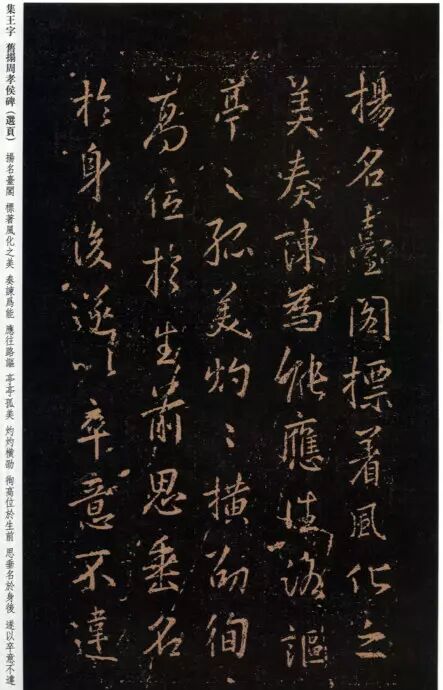 揚名臺閣標著風化之
美奏陳為能應往路謳
亭〻孤美灼〻橫劭徇
高位於生前思垂名
於身後遂以卒意不違
集王字 舊搨周孝侯碑（選頁） 揚名臺閣 標著風化之美 奏諫爲能 應往路謳 亭亭孤美 灼灼橫劭 徇高位於生前 思垂名於身後 遂以卒意不達